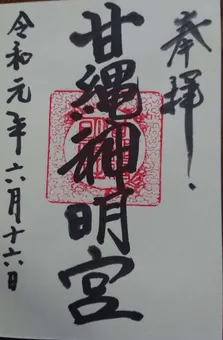 奉拝
甘縄神明宮
令和元年六月十六日